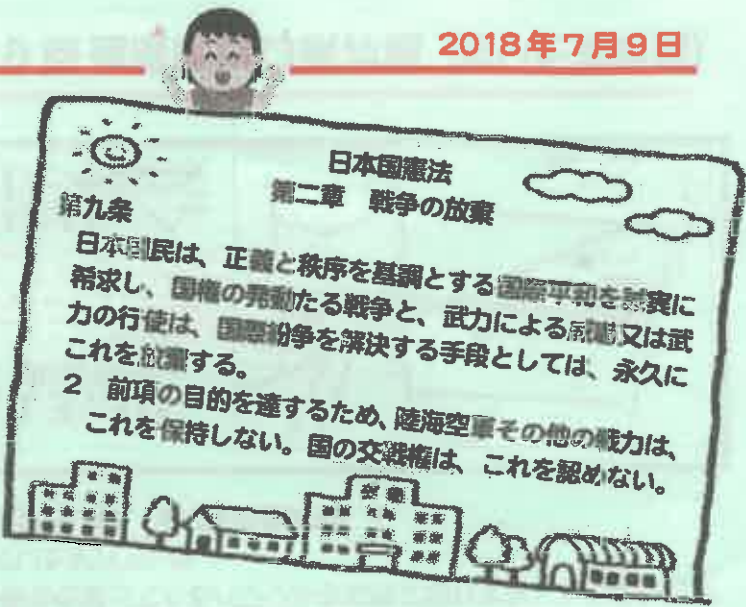 2018年7月9日
日本国憲法
第二章 戦争の放棄
第九条
日本国民は、正義と秩序を基調とする国際平和を誠実に
希求し、国権の発動たる戦争と、武力による威嚇又は武
力の行使は、国際紛争を解決する手段としては、永久に
これを放棄する。
2 前項の目的を達するため、陸海空軍その他の戦力は、
これを保持しない。国の交戦権は、これを認めない。